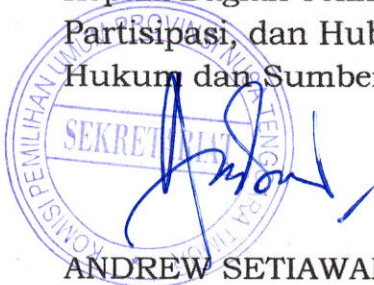 Partisipasi, dan Hub
Hukum dan Sumber
KOMISI PEMILIHAN UMUM PROVINSI NUSA TENGGARA TIMUR
SEKRETARIAT
ANDREW SETIAWA